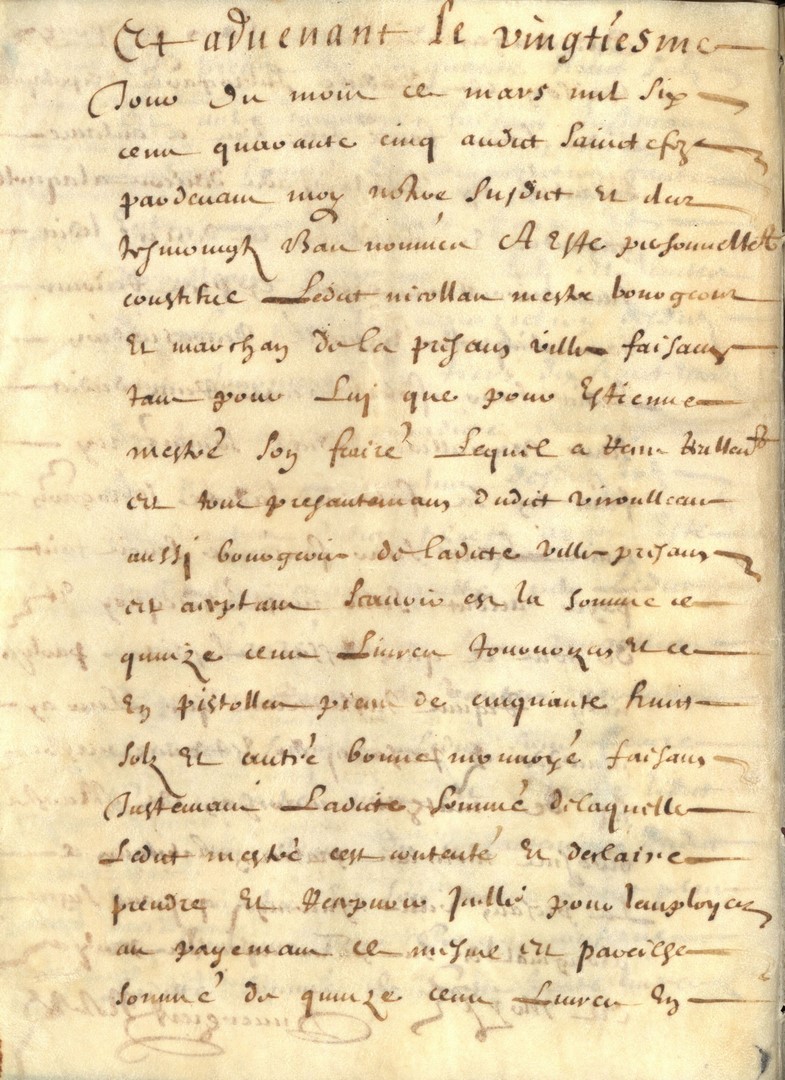 Et advenant le vingtiesme
Jour du mois de mars mil six
cens quarante cinq audict Sainctefoy
pardevant moy nore susdict et des
tesmoingtz bas nommes A Este personnellet
constitue Ledict nicollas mestre bourgeois
Et marchan de la presans ville faisans
tant pour Luj que pour Estienne
mestré son frairé Lequel a
et tout presantemans dudict viroulleau
aussj bourgeois de ladicte ville presans
et aceptant scavoir est la somme de
quinze cens Livres tournoizes Et ce
En pistolles piece de cinquante huict
solz Et autré bonne monnoyé faisans
Justemant Ladicte sommé delaquelle
Ledict mestré cest contenté Et desclaire
prendre Et Recepvoir jcelle pour lemployer
au payemant de mesme et pareilhe
sommé de quinze cens Livres En